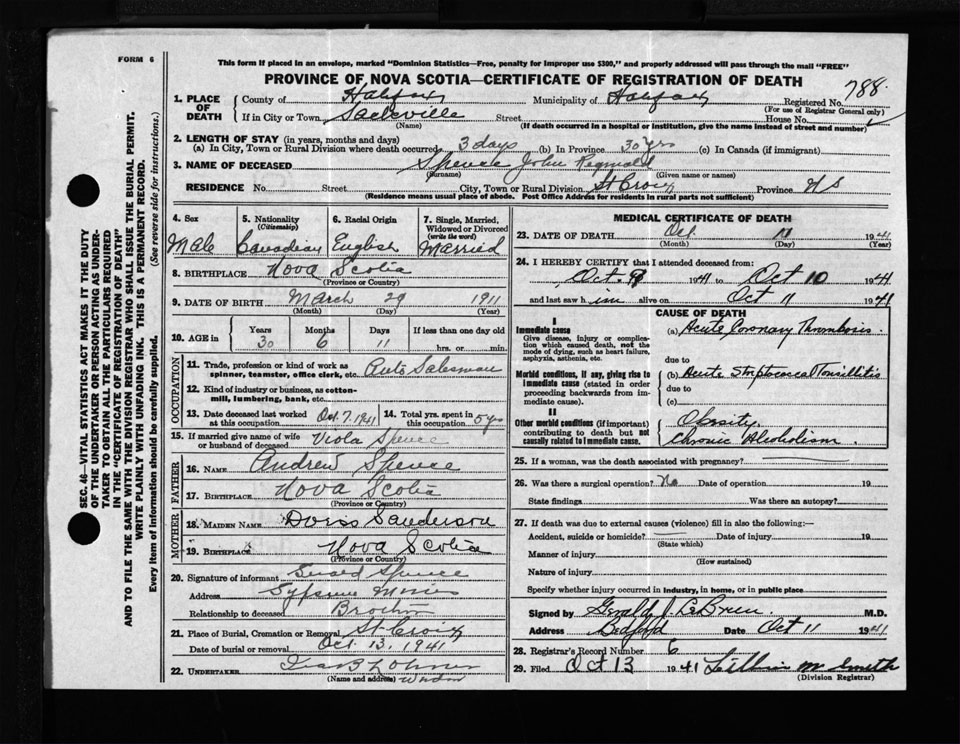 FORM 6
This form if placed in an envelope, marked "Dominion Statistics—Free, penalty for improper use $300," and properly addressed will pass through the mail "FREE"
PROVINCE OF NOVA SCOTIA—CERTIFICATE OF REGISTRATION OF DEATH
788
1. PLACE OF DEATH County of Halifax Municipality of Halifax Registered No.
(For use of Registrar General only)
If in City or Town Sackville Street House No.
(Name) (If death occurred in a hospital or institution, give the name instead of street and number)
2. LENGTH OF STAY (in years, months and days)
(a) In City, Town or Rural Division where death occurred 3 days (b) In Province 30 yrs (c) In Canada (if immigrant)
3. NAME OF DECEASED Spence John Reginald
(Surname) (Given name or names)
RESIDENCE No. Street City, Town or Rural Division St Croix Province N S
(Residence means usual place of abode. Post Office Address for residents in rural parts not sufficient)
4. Sex Male
5. Nationality (Citizenship) Canadian
6. Racial Origin English
7. Single, Married, Widowed or Divorced (write the word) Married
8. BIRTHPLACE Nova Scotia
(Province or Country)
9. DATE OF BIRTH March 29 1911
(Month) (Day) (Year)
10. AGE in Years 30 Months 6 Days 11 If less than one day old hrs. or min.
OCCUPATION
11. Trade, profession or kind of work as spinner, teamster, office clerk, etc. Auto Salesman
12. Kind of industry or business, as cotton-mill, lumbering, bank, etc.
13. Date deceased last worked at this occupation Oct. 7, 1941
14. Total yrs. spent in this occupation 5 yrs
15. If married give name of wife or husband of deceased Viola Spence
FATHER
16. NAME Andrew Spence
17. BIRTHPLACE Nova Scotia
(Province or Country)
MOTHER
18. MAIDEN NAME Doriss Sanderson
19. BIRTHPLACE Nova Scotia
(Province or Country)
20. Signature of informant Spence
Address
Relationship to deceased Brother
21. Place of Burial, Cremation or Removal St. Croix
Date of burial or removal Oct. 13, 1941
22. UNDERTAKER
(Name and address)
MEDICAL CERTIFICATE OF DEATH
23. DATE OF DEATH Oct. 11 1941
(Month) (Day) (Year)
24. I HEREBY CERTIFY that I attended deceased from:
Oct. 9 1941 to Oct 10 1941
and last saw him alive on Oct 11 1941
CAUSE OF DEATH
I
Immediate cause
Give disease, injury or complication which caused death, not the mode of dying, such as heart failure, asphyxia, asthenia, etc.
(a) Acute Coronary Thrombosis.
due to
Morbid conditions, if any, giving rise to immediate cause (stated in order proceeding backwards from immediate cause).
(b) Acute Streptococcal Tonsillitis
due to
(c)
II
Other morbid conditions (if important) contributing to death but not causally related to immediate cause.
Obesity.
Chronic Alcoholism.
25. If a woman, was the death associated with pregnancy?
26. Was there a surgical operation? No Date of operation 19
State findings Was there an autopsy?
27. If death was due to external causes (violence) fill in also the following:—
Accident, suicide or homicide? Date of injury 19
(State which)
Manner of injury
(How sustained)
Nature of injury
Specify whether injury occurred in industry, in home, or in public place
Signed by Gerald J. LeBrun. M.D.
Address Bedford Date Oct 11 1941
28. Registrar's Record Number 6
29. Filed Oct 13 1941 Lillian M Smith
(Division Registrar)
SEC. 46—VITAL STATISTICS ACT MAKES IT THE DUTY
OF THE UNDERTAKER OR PERSON ACTING AS UNDER-
TAKER TO OBTAIN ALL THE PARTICULARS REQUIRED
IN THE "CERTIFICATE OF REGISTRATION OF DEATH"
AND TO FILE THE SAME WITH THE DIVISION REGISTRAR WHO SHALL ISSUE THE BURIAL PERMIT.
WRITE PLAINLY WITH UNFADING INK. THIS IS A PERMANENT RECORD.
Every item of information should be carefully supplied. (See reverse side for instructions.)